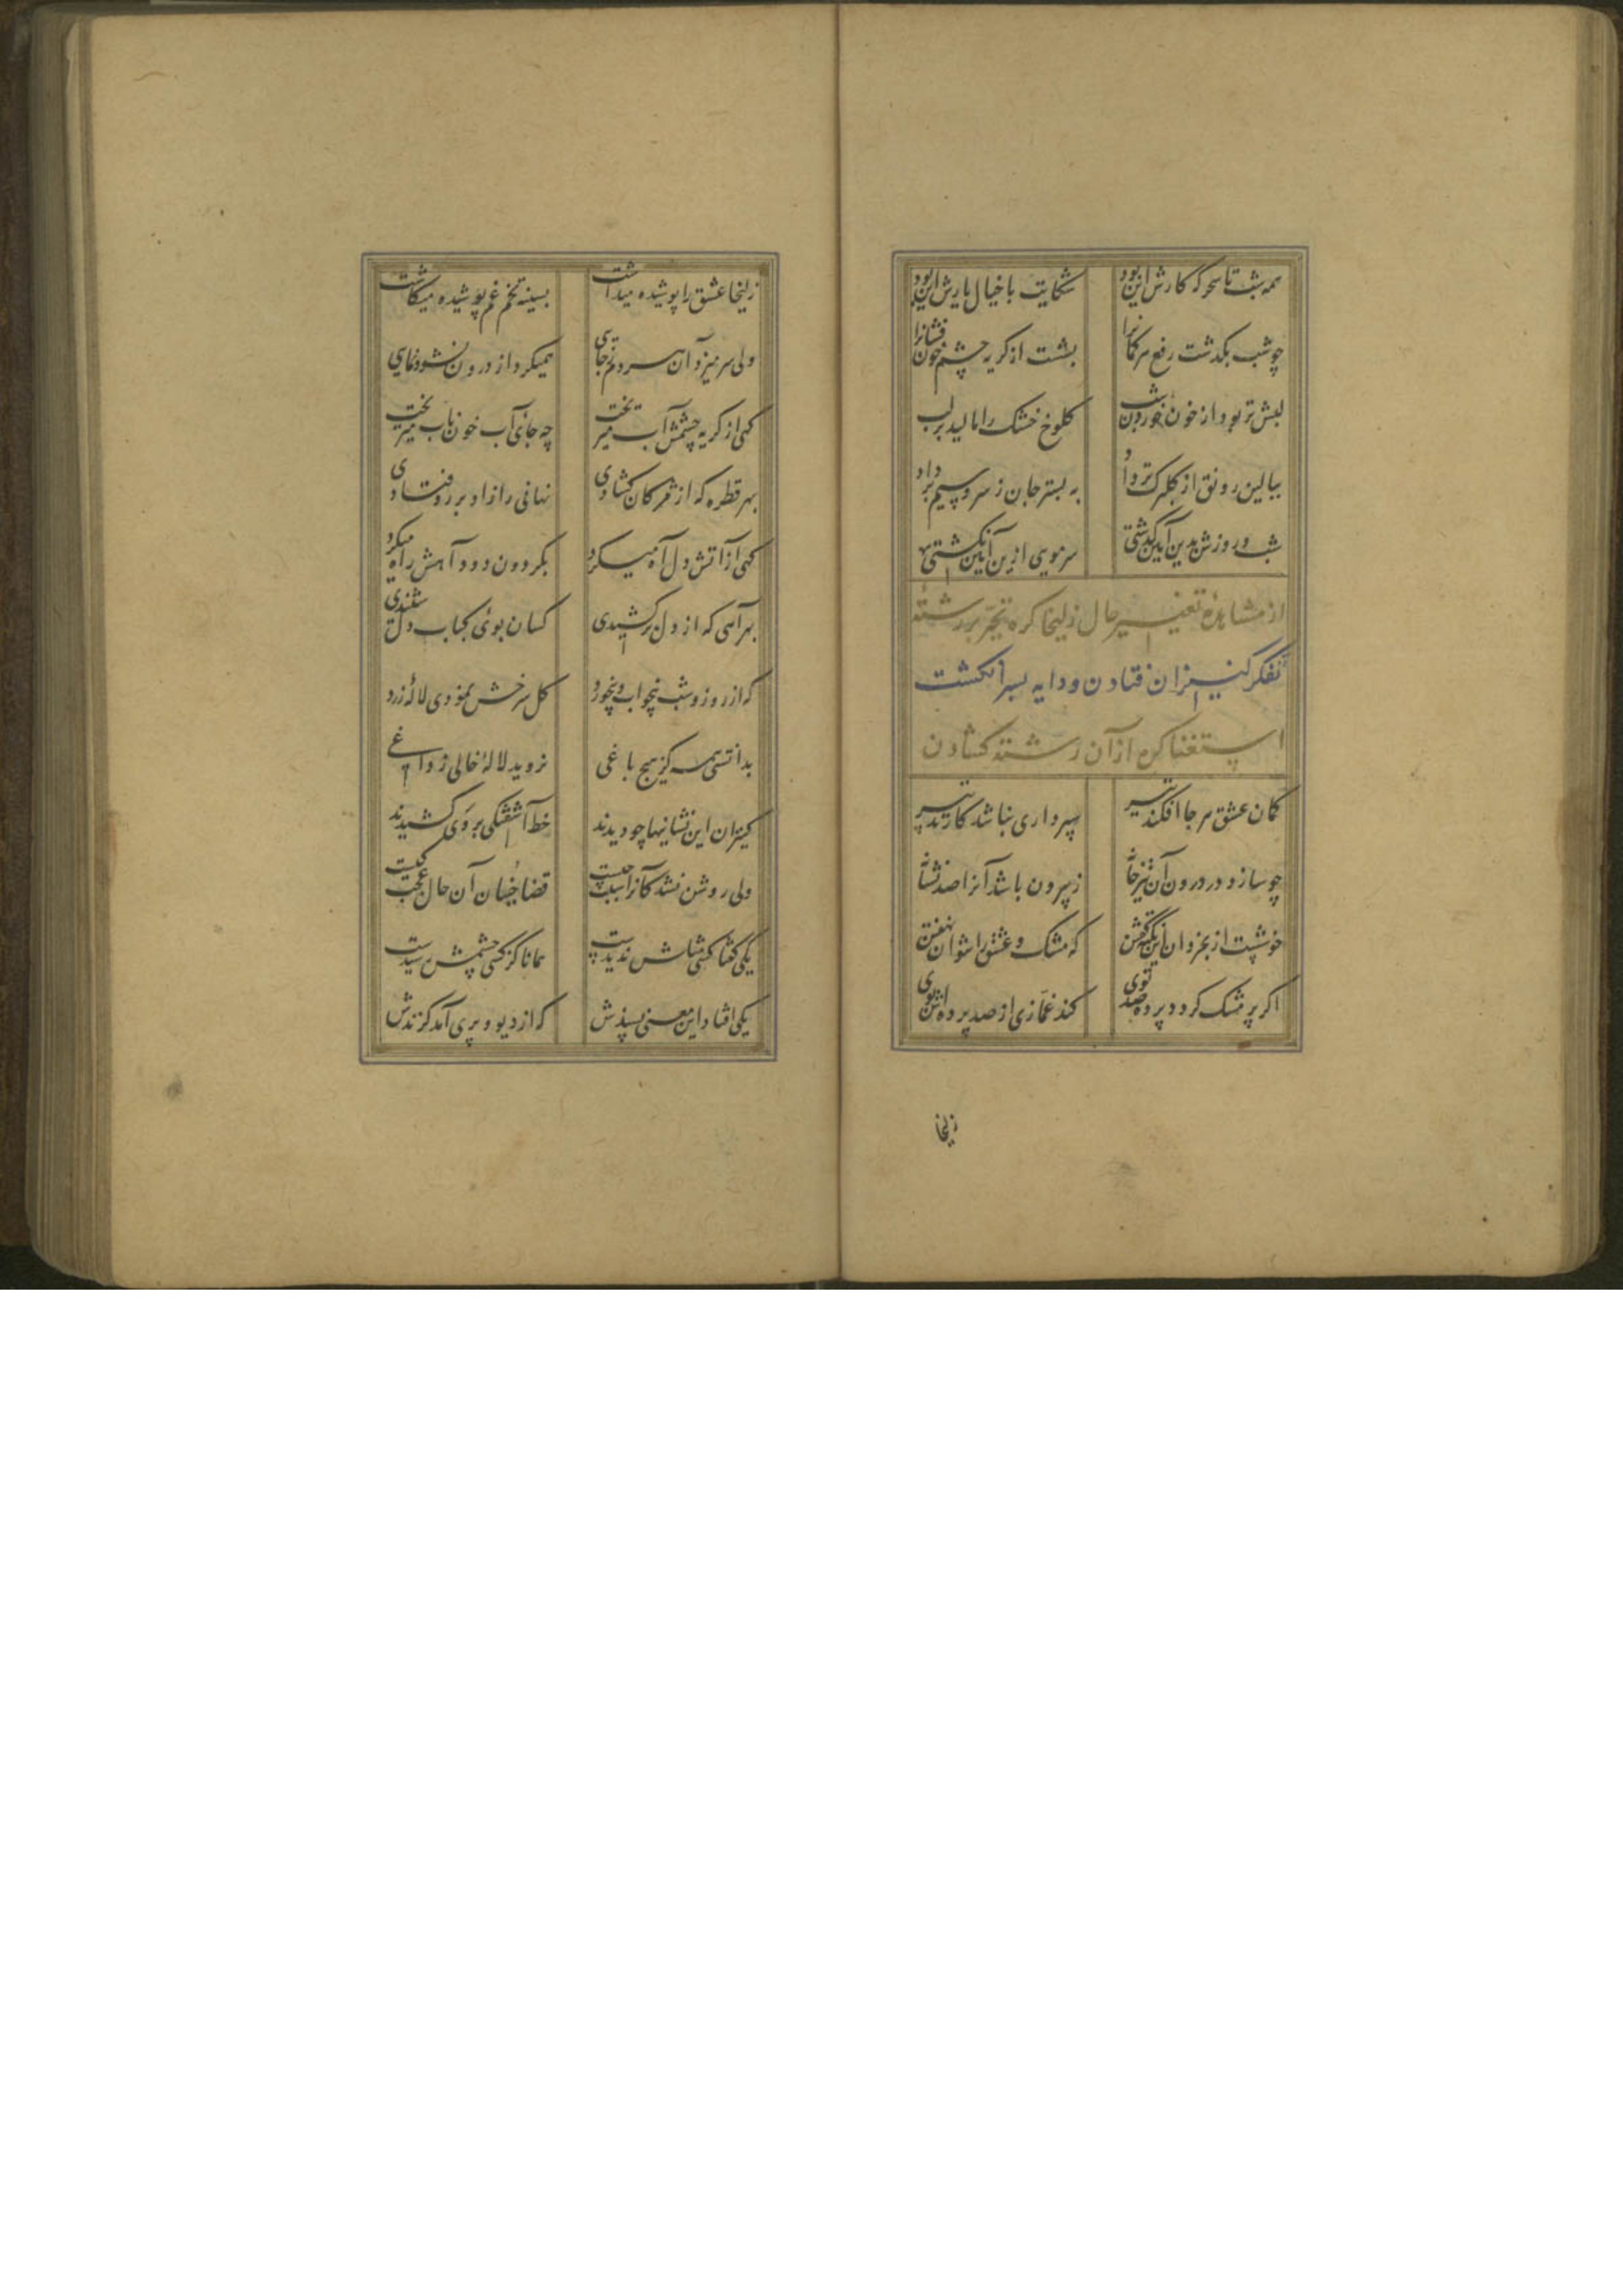 همه شب تا سحرگه کارش این بود شکایت با خیال یارش این بود
چو شب بگذشت رفع هر گمانرا بشست از گریه چشم خون فشانرا
لبش تر بود از خون خوردن شب کلوخ خشک را مالید بر لب
ببالین رونق از گلبرگ تر داد به بستر جان ز سرو سیم بر داد
شب و روزش بدین آیین گذشتی سر مویی ازین آیین نگشتی
از مشاهدهٔ تغییر حال زلیخا گره تحیر بر رشتهٔ
تفکر کنیزان فتادن و دایه بسر انگشت
استغنا گره از آن رشته گشادن
کمان عشق هر جا افکند تیر سپرداری نباشد کار تدبیر
چو سازد در درون آن تیر خانه ز بیرون باشد آنرا صد نشانه
خوشست از بخردان این نکته گفتن که مشک و عشق را نتوان نهفتن
اگر بر مشک گردد پرده صد توی کند غمازی از صد پرده اش بوی
زلیخا
زلیخا عشق را پوشیده میداشت بسینه تخم غم پوشیده میکاشت
ولی سر میزد آن هر دم ز جایی همیکرد از درون نشو و نمایی
گهی از گریه چشمش آب میریخت چه جای آب خون ناب میریخت
بهر قطره که از مژگان گشادی نهانی راز او بر رو فتادی
گهی از آتش دل آه میکرد بگردون دود آهش راه میکرد
بهر آهی که از دل برکشیدی کسان بوی کباب دل شنیدی
که از روز و شب بیخواب و بیخورد گل سرخش نمودی لالهٔ زرد
بدانستی همه کز هیچ باغی نروید لالهٔ خالی ز داغی
کنیزان این نشانیها چو دیدند خط آشفتگی بر وی کشیدند
ولی روشن نشد کآنرا سبب چیست قضا جنبان آن حال عجب کیست
یکی گفتا کسی مثلش ندیدست همانا کز کسی چشمش رسیدست
یکی افتاد این معنی پسندش که از دیو و پری آمد گزندش